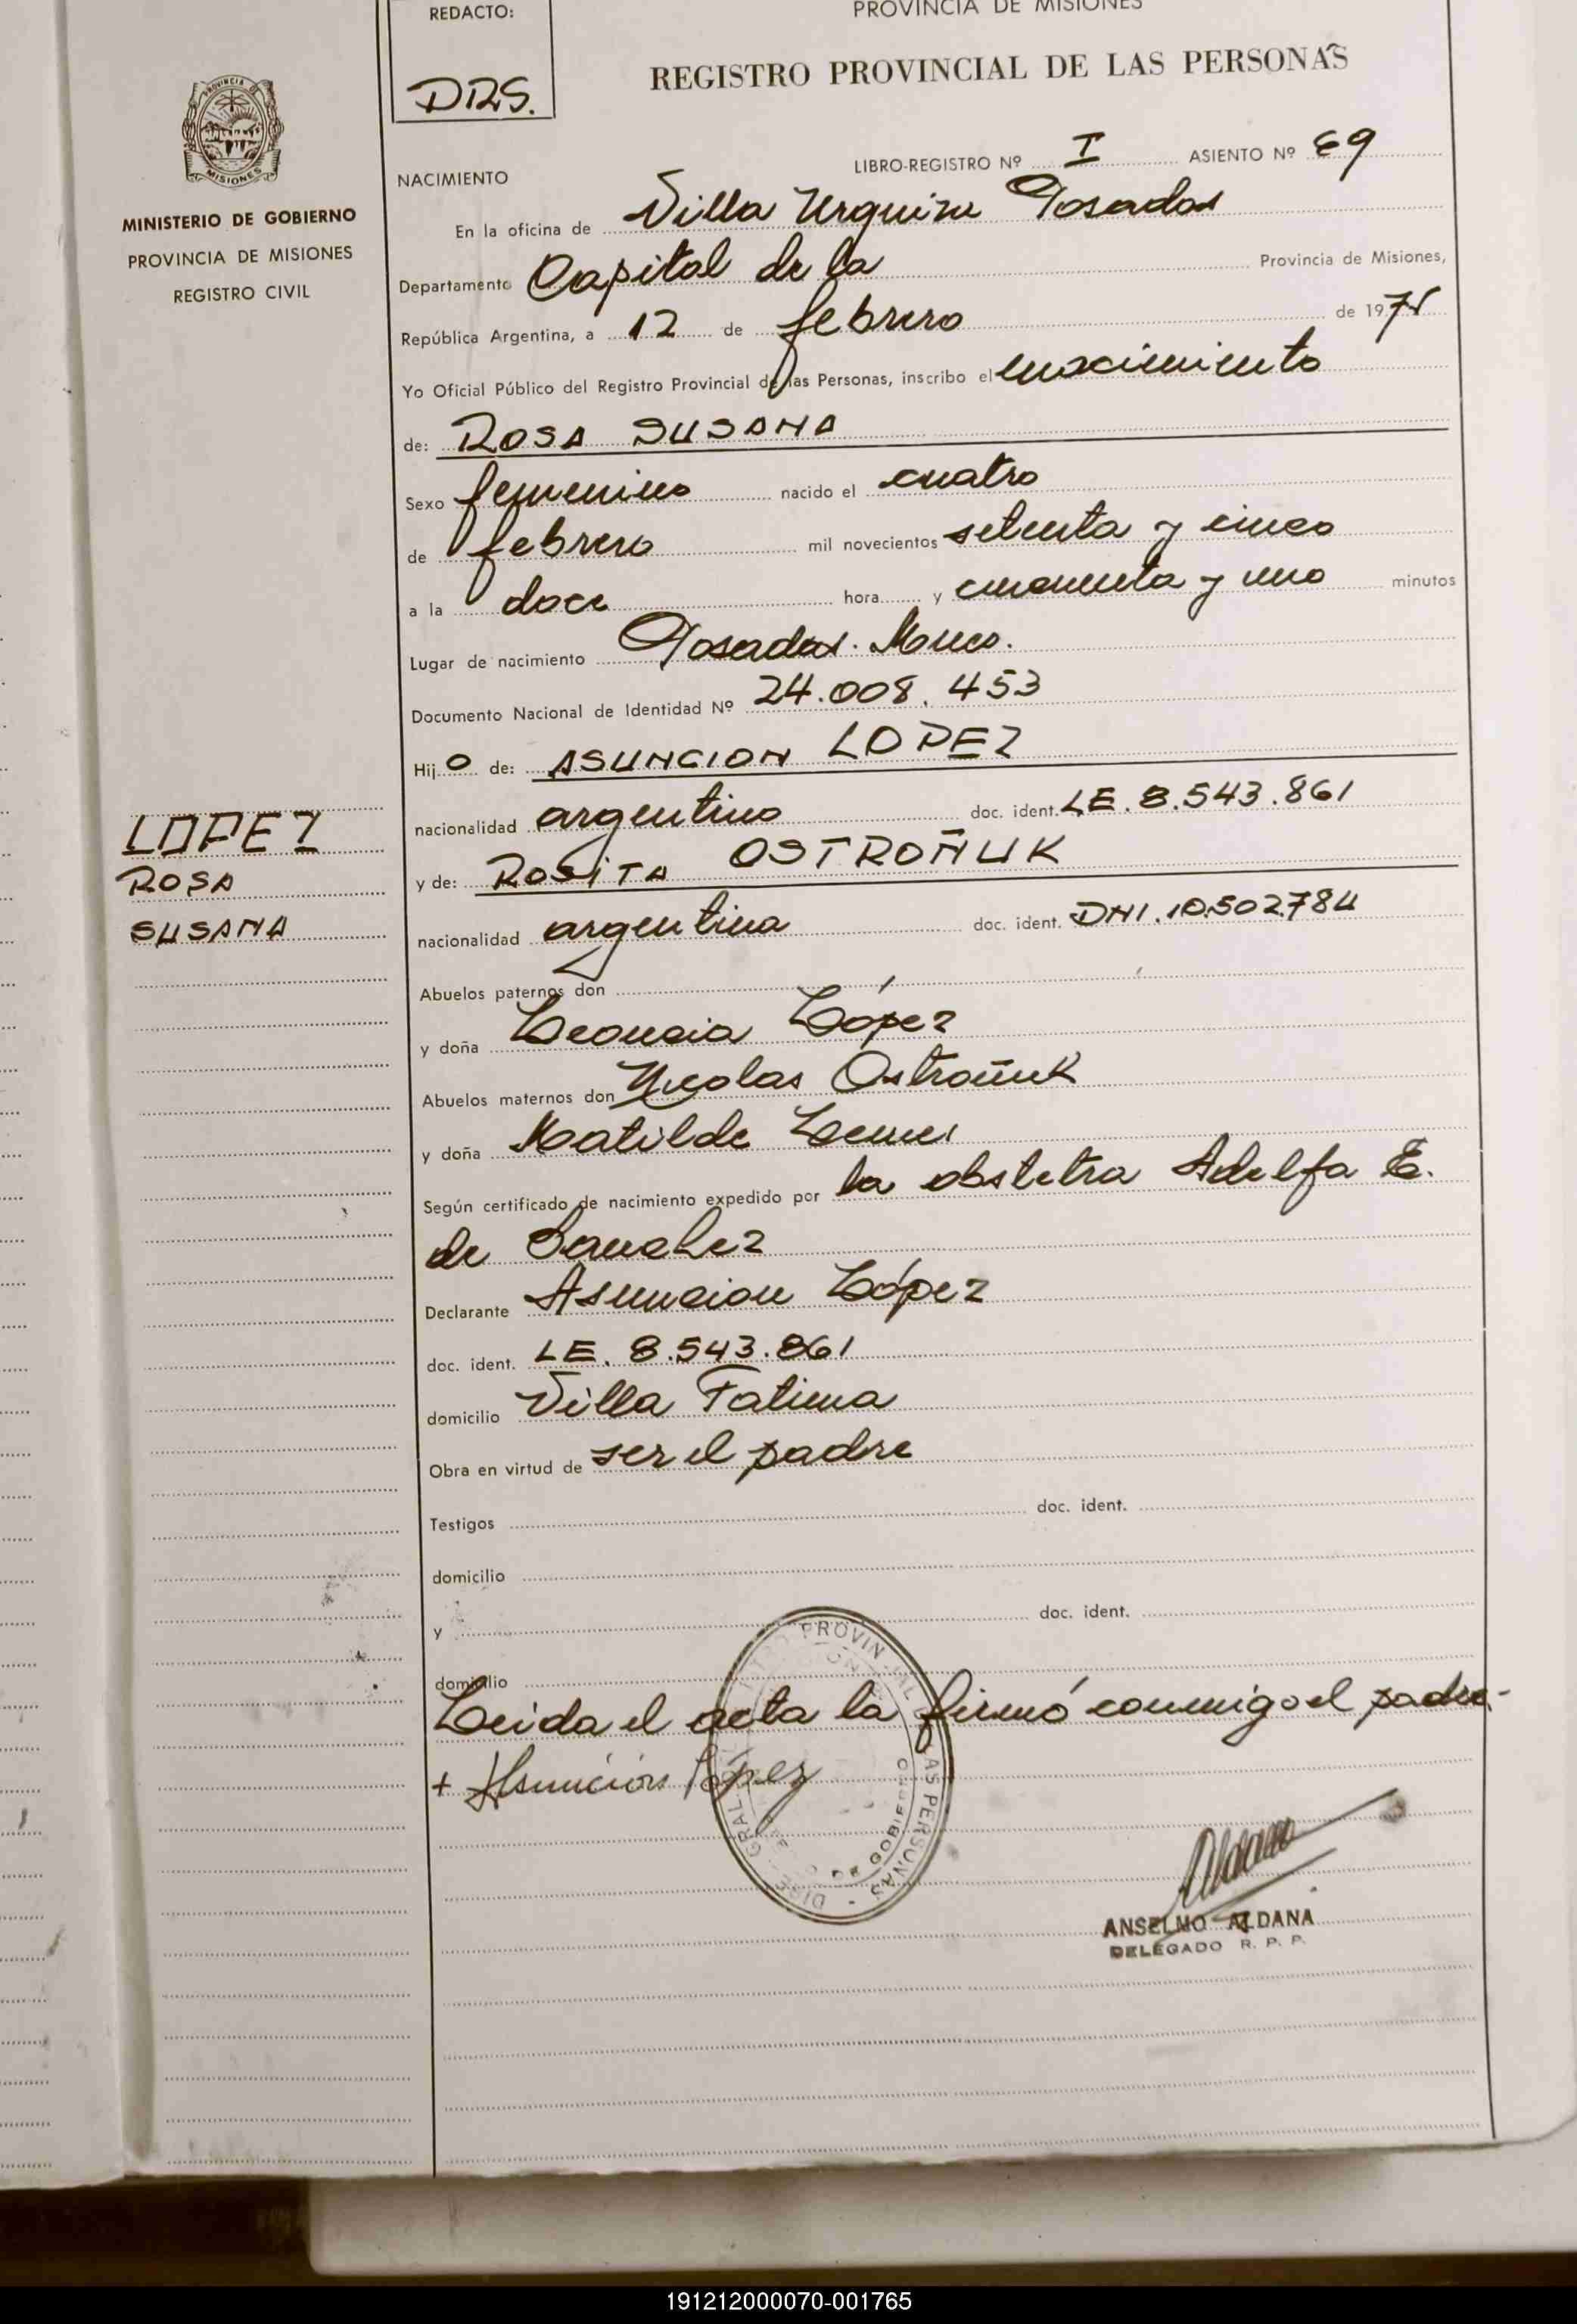 REDACTO:
PROVINCIA DE MISIONES
DRS.
REGISTRO PROVINCIAL DE LAS PERSONAS
PROVINCIA DE
MISIONES
MINISTERIO DE GOBIERNO
PROVINCIA DE MISIONES
REGISTRO CIVIL
NACIMIENTO
LIBRO-REGISTRO Nº I ASIENTO Nº 69
En la oficina de Villa Urquiza Posadas
Departamento Capital de la Provincia de Misiones,
República Argentina, a 12 de febrero de 1975
Yo Oficial Público del Registro Provincial de las Personas, inscribo el nacimiento
de: ROSA SUSANA
Sexo femenino nacido el cuatro
de febrero mil novecientos setenta y cinco
a la doce hora y cincuenta y uno minutos
Lugar de nacimiento Posadas.
Documento Nacional de Identidad Nº 24.008.453
Hij o de: ASUNCION LOPEZ
nacionalidad argentino doc. ident. LE. 8.543.861
y de: ROSITA OSTROÑUK
nacionalidad argentina doc. ident. DNI. 10.502.784
LOPEZ
ROSA
SUSANA
Abuelos paternos don
y doña Leoncia López
Abuelos maternos don Nicolas Ostroñuk
y doña Matilde
Según certificado de nacimiento expedido por la obstetra Adelfa E.
de Sanchez
Declarante Asuncion López
doc. ident. LE. 8.543.861
domicilio Villa Fatima
Obra en virtud de ser el padre
Testigos doc. ident.
domicilio
y doc. ident.
domicilio
Leida el acta la firmó conmigo el padre.-
+ Asunción López
PROVINCIAL LAS PERSONAS - DIRE GRAL
DE GOBIERNO
Aldana
ANSELMO ALDANA
DELEGADO R. P. P.
191212000070-001765